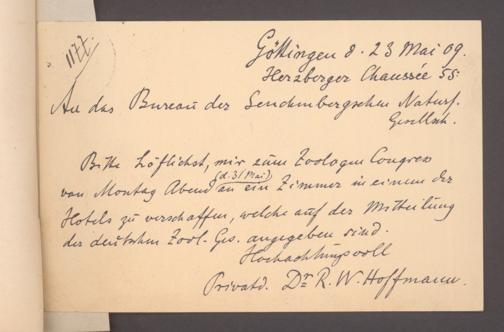 1177.
Göttingen d. 23 Mai 09.
Herzberger Chaussée 55.
An das Bureau der Senckenbergschen Naturf.
Gesellsch.
Bitte höflichst, mir zum Zoologen Congress
von Montag Abend (d. 31 Mai) an ein Zimmer in einem der
Hotels zu verschaffen, welche auf der Mitteilung
der deutschen Zool. Ges. angegeben sind.
Hochachtungsvoll
Privatd. Dr R. W. Hoffmann.